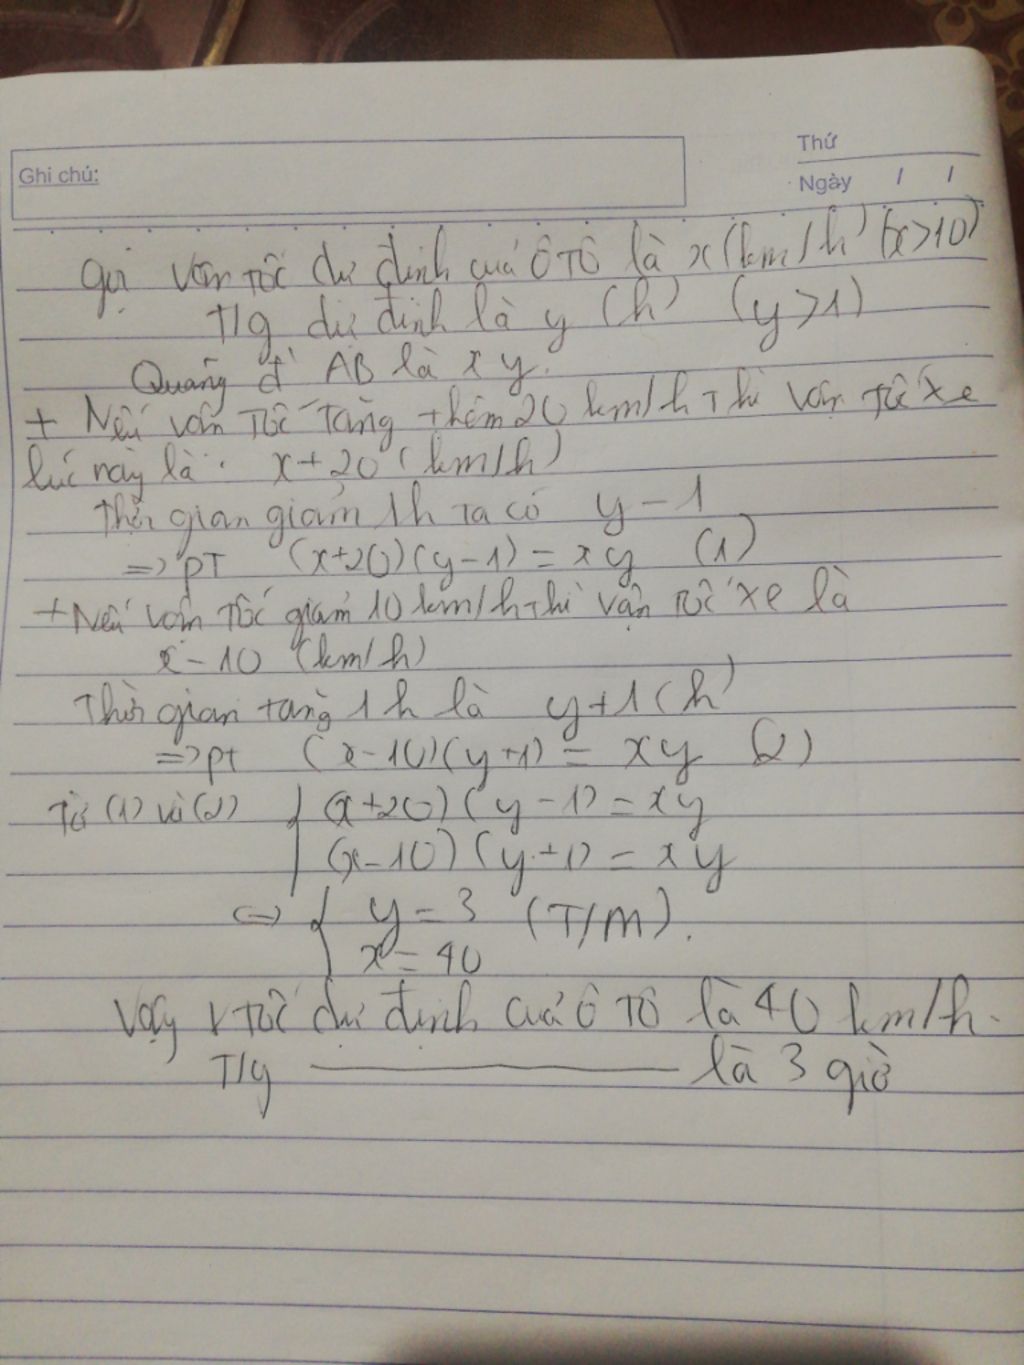 Ghi chú:
Thứ
Ngày / /
Gọi vân tốc dự định của ô tô là x (km/h) (x>10)
T/g dự định là y (h) (y>1)
Quãng đ AB là xy.
+ Nếu vân tốc tăng thêm 20 km/h thì vân tốc xe
lúc này là: x+20 (km/h)
Thời gian giảm 1h ta có y-1
=> PT (x+20)(y-1) = xy (1)
+ Nếu vân tốc giảm 10 km/h thì vận tốc xe là
x-10 (km/h)
Thời gian tăng 1h là y+1 (h)
=> pt (x-10)(y+1) = xy (2)
Từ (1) và (2) { (x+20)(y-1) = xy
(x-10)(y+1) = xy
<=> { y = 3 (T/M).
x = 40
Vậy v tốc dự định của ô tô là 40 km/h.
T/g ——— là 3 giờ